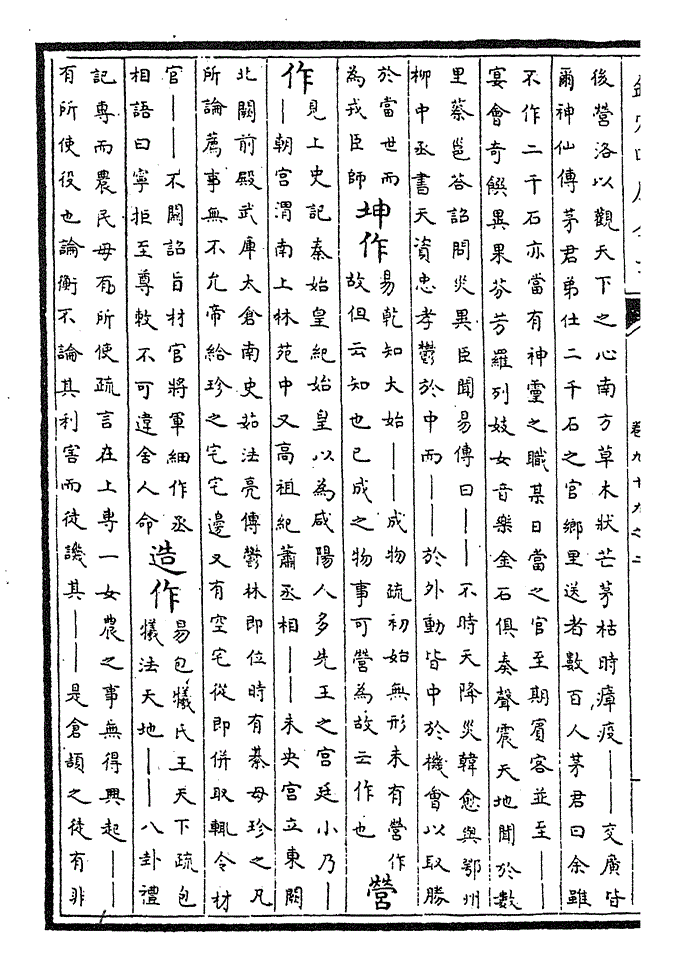 後營洛以觀天下之心南方草木狀芒茅枯時瘴疫——交廣皆
爾神仙傳茅君弟仕二千石之官鄉里送者數百人茅君曰余雖
不作二千石亦當有神靈之職某日當之官至期賓客並至——
宴會奇饌異果芬芳羅列妓女音樂金石俱奏聲震天地聞於數
里蔡邕荅詔問災異臣聞易傳曰——不時天降災韓愈與鄂州
柳中丞書天資忠孝鬱於中而——於外動皆中於機會以取勝
於當世而
為戎臣師
坤作
易乾知大始——成物疏初始無形未有營作
故但云知也已成之物事可營為故云作也
營
作
見上史記秦始皇紀始皇以為咸陽人多先王之宫廷小乃—
—朝宮渭南上林苑中又高祖紀蕭丞相——未央宫立東闕
北闕前殿武庫太倉南史茹法亮傳鬱林即位時有綦母珍之凡
所論薦事無不允帝給珍之宅宅邊又有空宅從即併取輒令材
官——不關詔旨材官將軍細作丞
相語曰寧拒至尊敕不可違舍人命
造作
易包犧氏王天下疏包
犧法天地——八卦禮
記專而農民毋有所使疏言在上專一女農之事無得興起——
有所使役也論衡不論其利害而徒譏其——是倉頡之徒有非